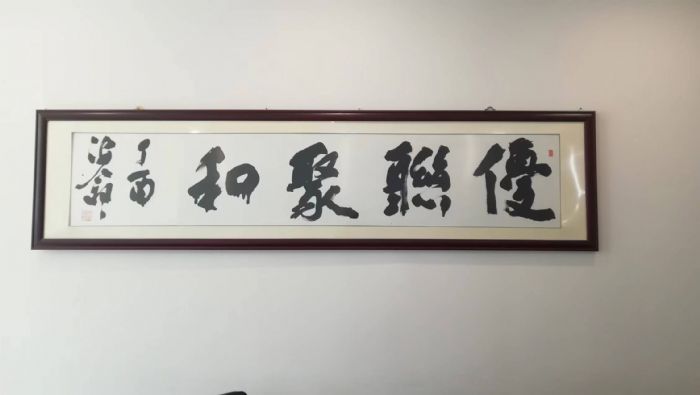 優聯聚和
丁酉